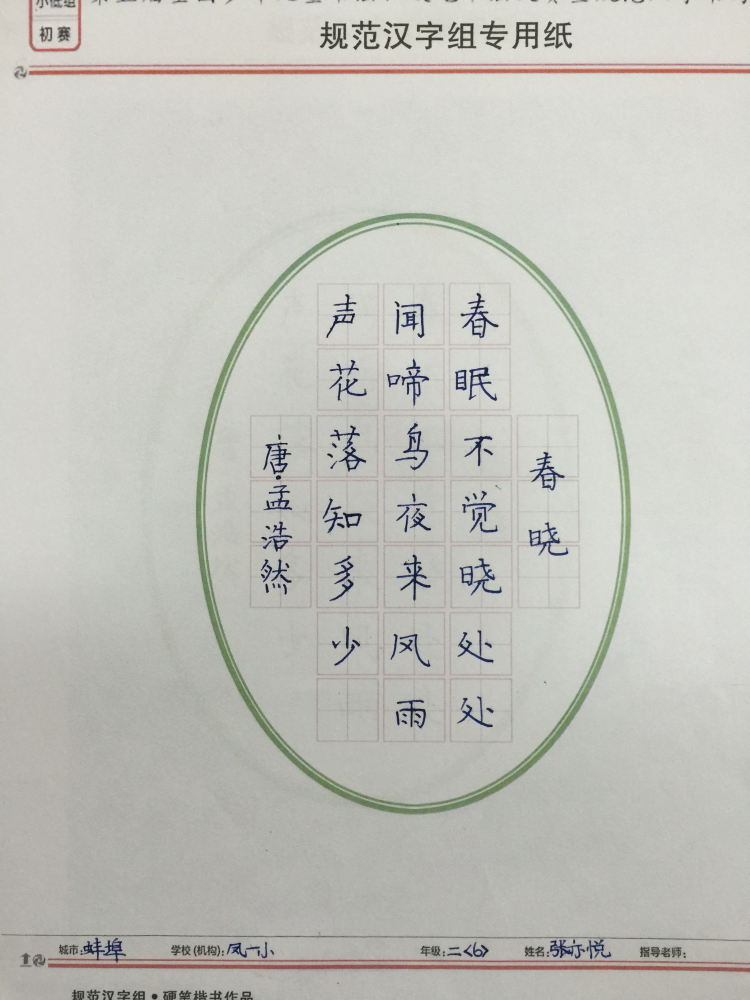 小低组
初赛
规范汉字组专用纸
春晓
春眠不觉晓处处
闻啼鸟夜来风雨
声花落知多少
唐·孟浩然
城市:蚌埠 学校(机构):凤一小 年级:二<6> 姓名:张亦悦 指导老师:
规范汉字组·硬笔楷书作品